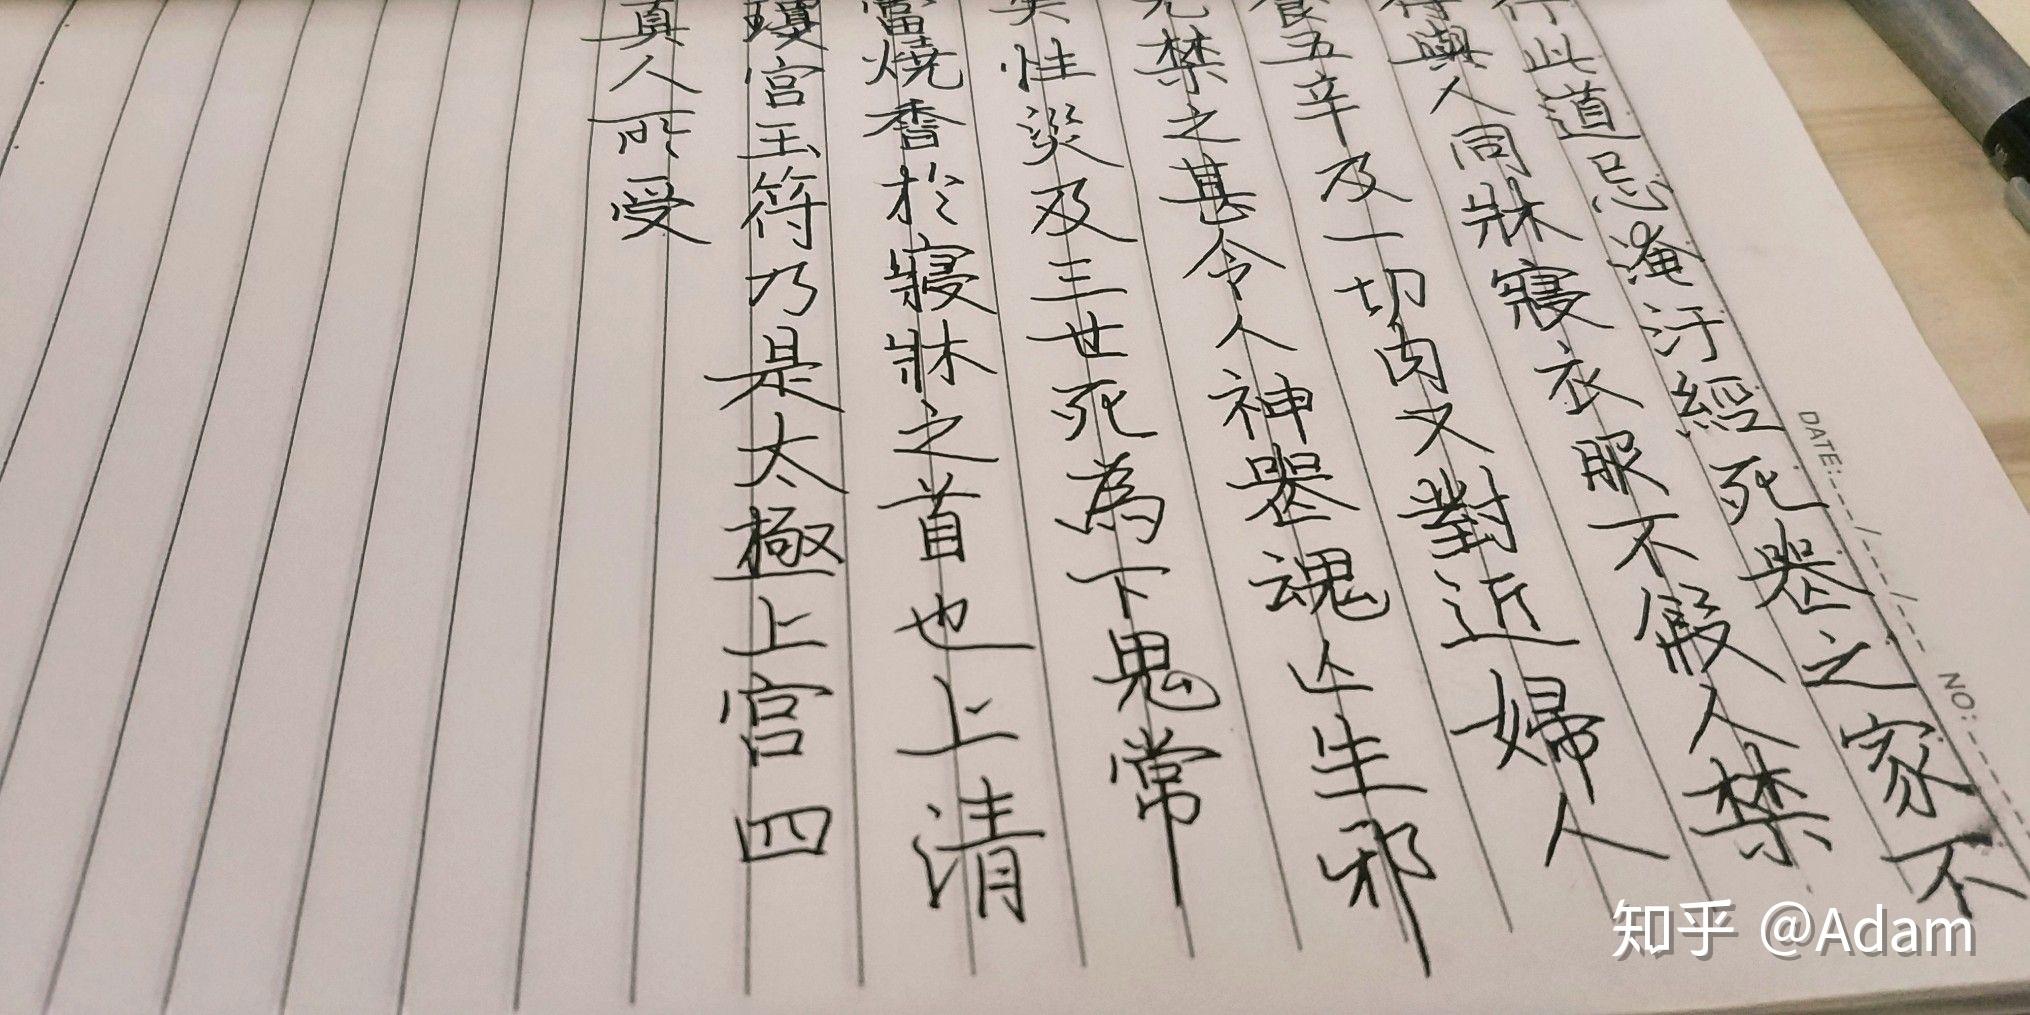 行此道忌淹汙經死喪之家不
得與人同牀寢衣服不假人禁
食五辛及一切肉又對近婦人
尤禁之甚令人神喪魂亡生邪
失性災及三世死為下鬼常
當燒香於寢牀之首也上清
瓊宮玉符乃是太極上宮四
真人所受
DATE: / /
NO:
知乎 @Adam